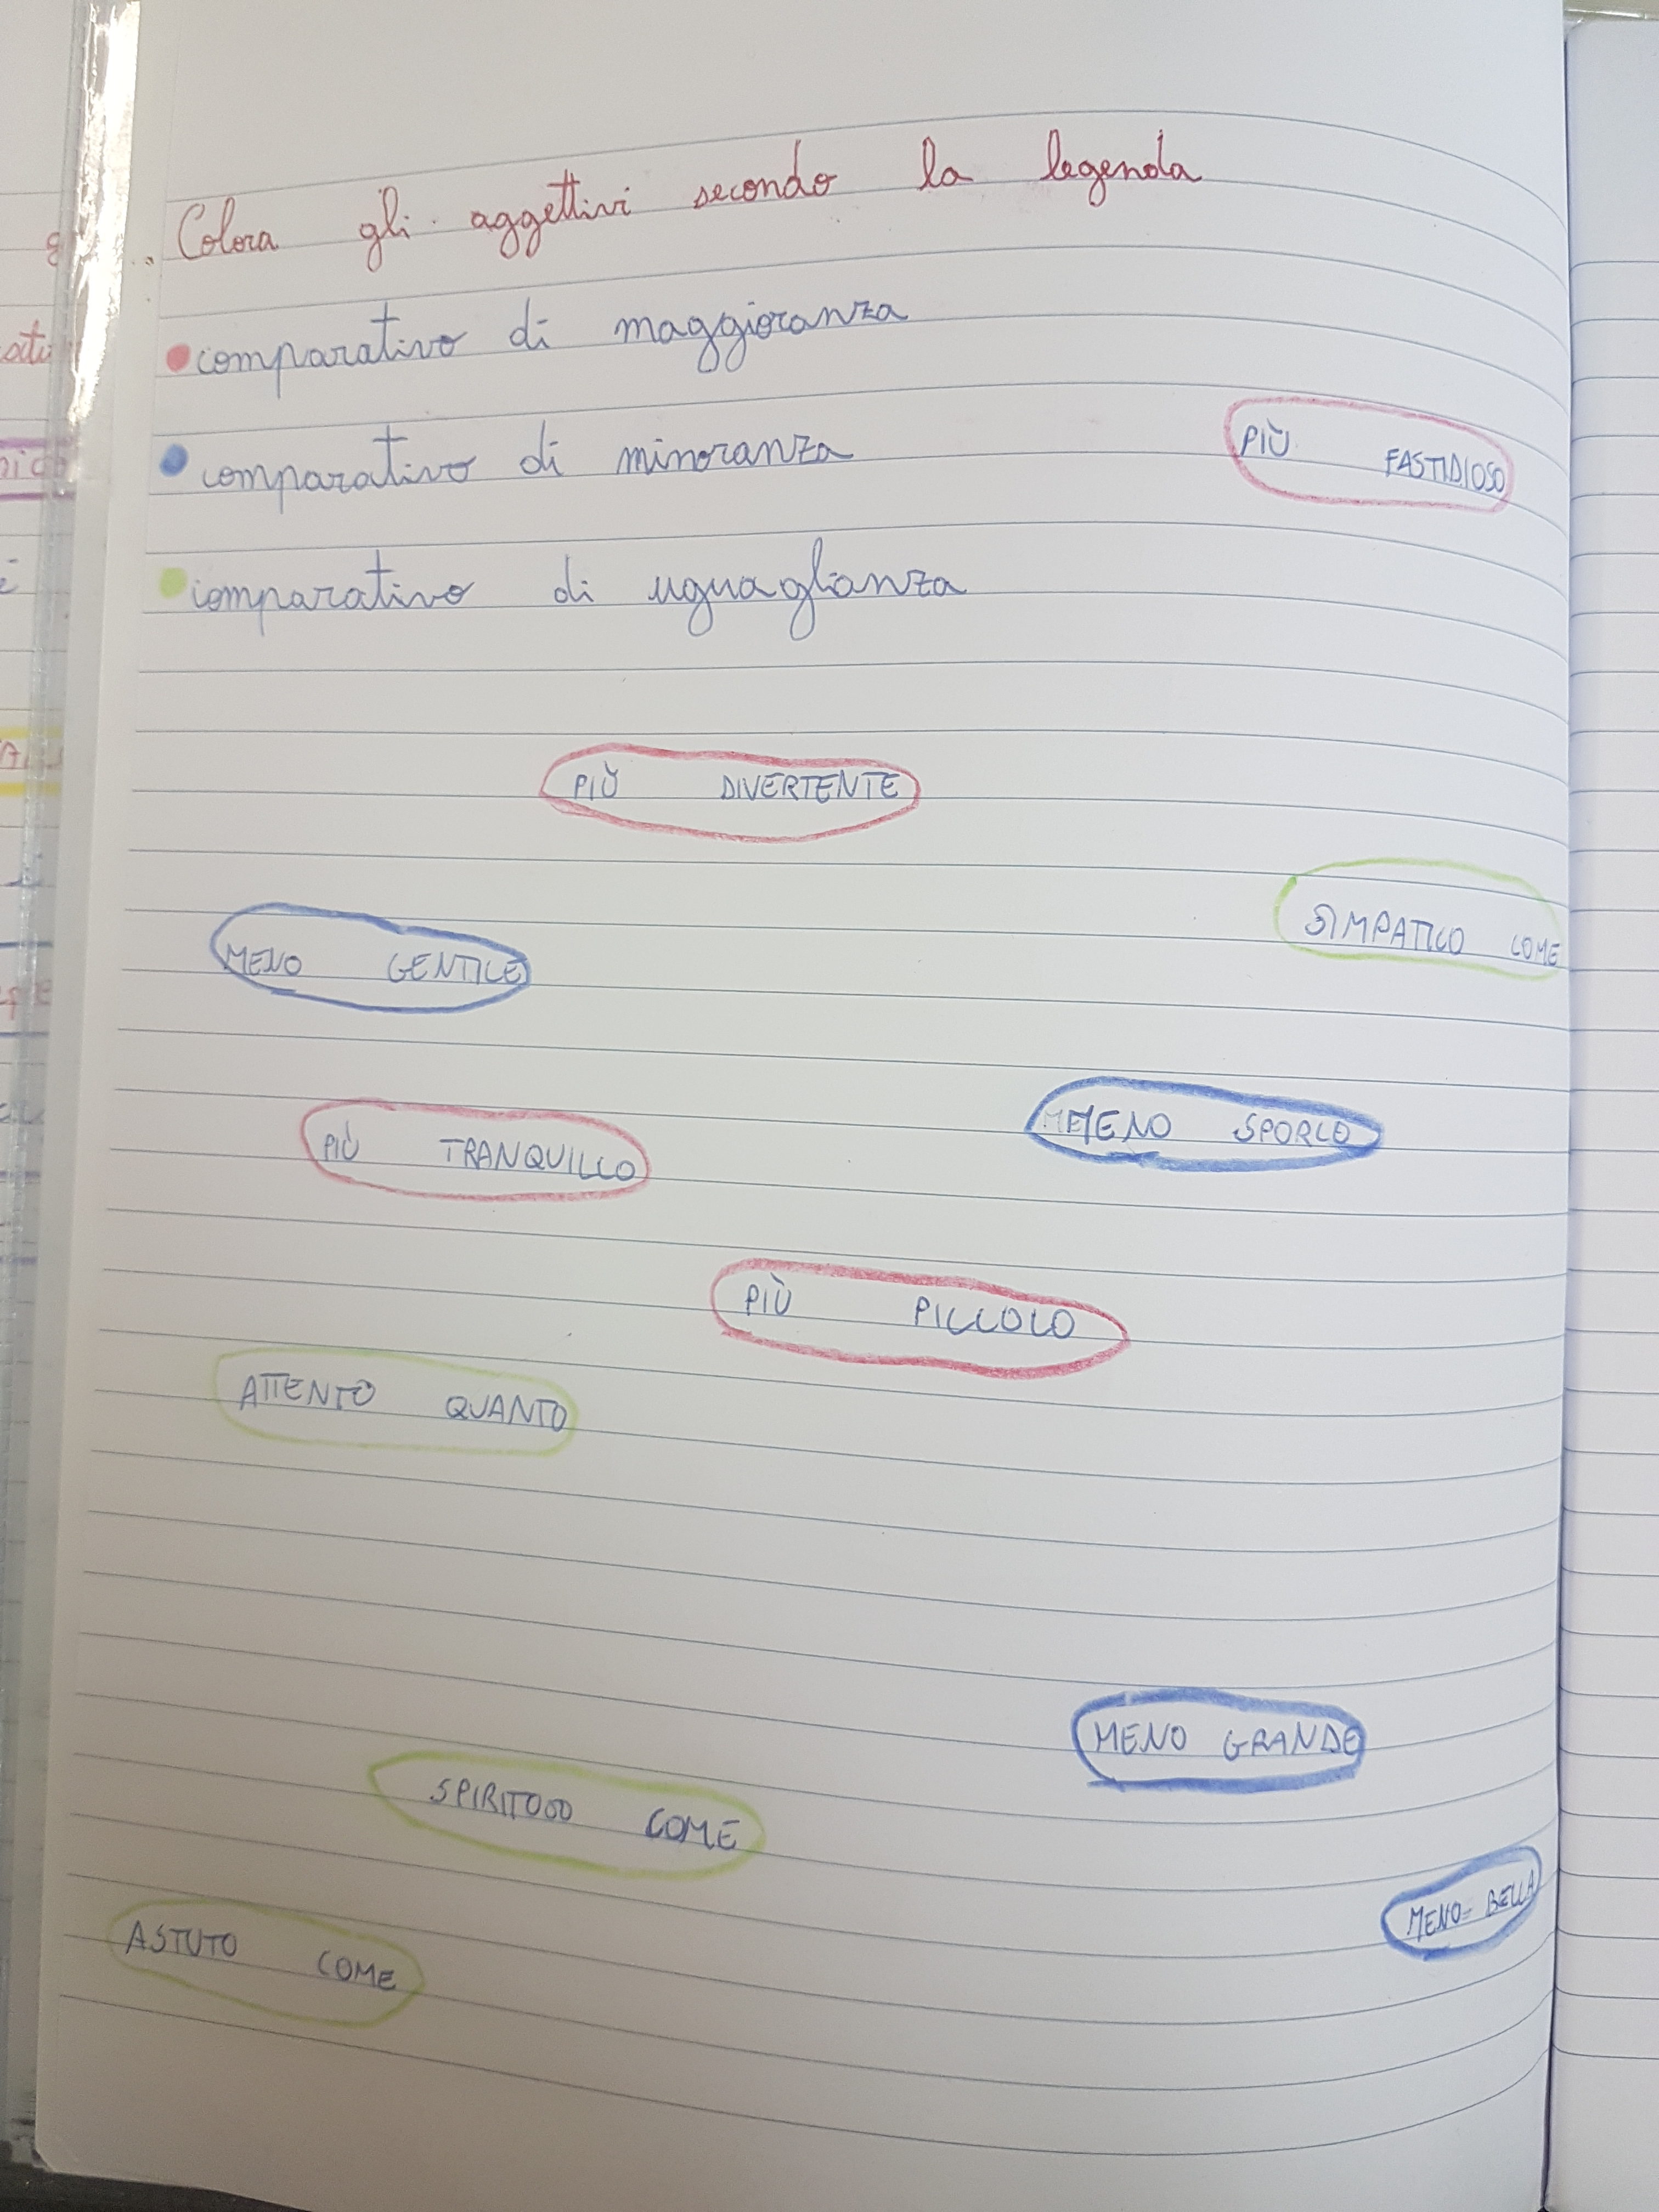 Colora gli aggettivi secondo la legenda
comparativo di maggioranza
comparativo di minoranza
PIÙ FASTIDIOSO
comparativo di uguaglianza
PIÙ DIVERTENTE
SIMPATICO COME
MENO GENTILE
MENO SPORCO
PIÙ TRANQUILLO
PIÙ PICCOLO
ATTENTO QUANTO
MENO GRANDE
SPIRITOSO COME
MENO BELLA
ASTUTO COME